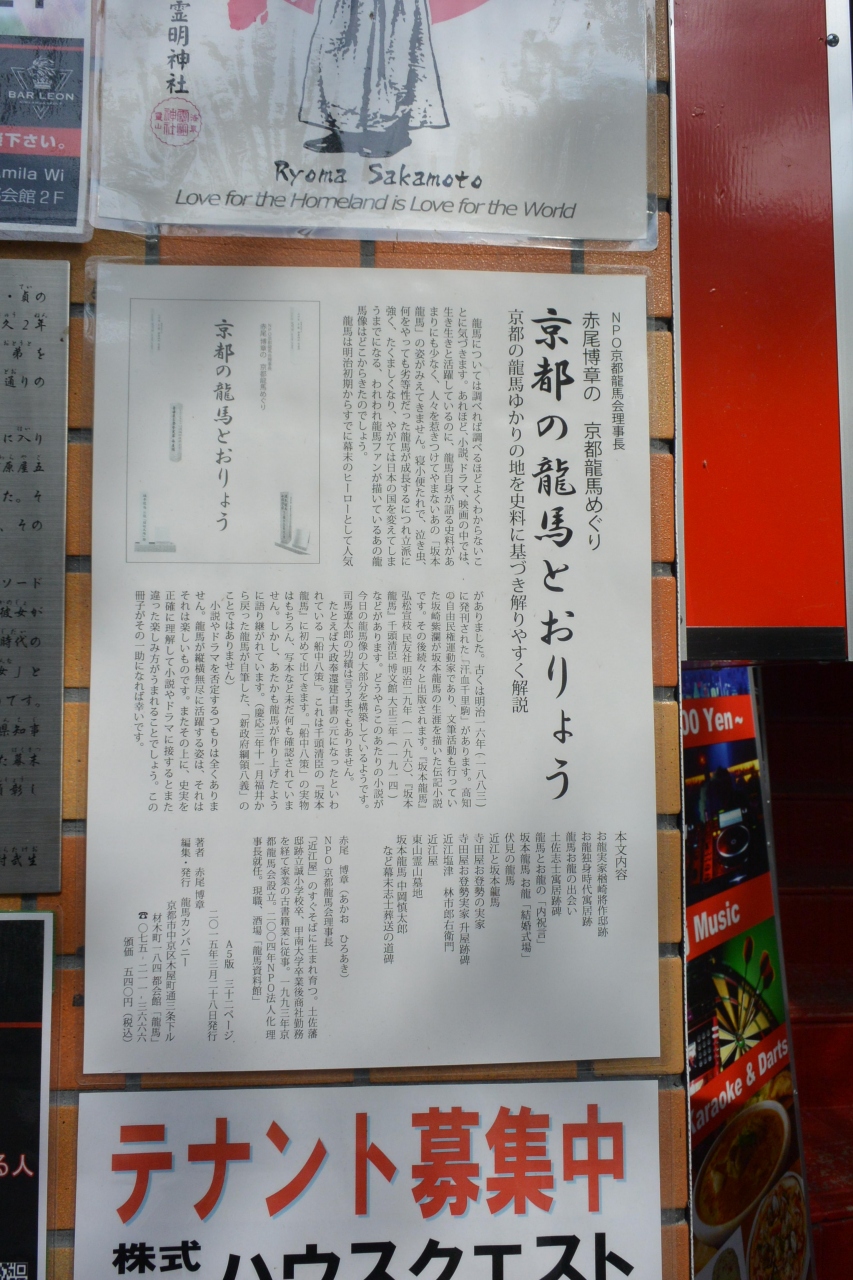 霊明神社
Ryoma Sakamoto
Love for the Homeland is Love for the World
BAR LEON
下さい。
mila Wi
会館2F
・貞の
久2年
弟を
通りの
に入り
原屋五
た。そ
、その
ソード
彼女が
時代の
女」と
です。
県知事
た幕末
NPO京都龍馬会理事長
赤尾博章の 京都龍馬めぐり
京都の龍馬とおりょう
京都の龍馬ゆかりの地を史料に基づき解りやすく解説
龍馬については調べれば調べるほどよくわからないこ
とに気づきます。あれほど、小説、ドラマ、映画の中では、
生き生きと活躍しているのに、龍馬自身が語る史料があ
まりにも少なく、人々を惹きつけてやまないあの「坂本
龍馬」の姿がみえてきません。寝小便たれで、泣き虫、
何をやっても劣等性だった龍馬が成長するにつれ立派に
強く、たくましくなり、やがては日本の国を変えてしま
うまでになる、われわれ龍馬ファンが描いているあの龍
馬像はどこからきたのでしょう。
龍馬は明治初期からすでに幕末のヒーローとして人気
がありました。古くは明治一六年(一八八三)
に発刊された『汗血千里駒』があります。高知
の自由民権運動家であり、文筆活動も行ってい
た坂崎紫瀾が坂本龍馬の生涯を描いた伝記小説
です。その後続々と出版されます。『坂本龍馬』
弘松宣枝 民友社 明治二九年(一八九六)、『坂本
龍馬』千頭清臣 博文館 大正三年(一九一四)
などがあります。どうやらこのあたりの小説が
今日の龍馬像の大部分を構築しているようです。
司馬遼太郎の功績は言うまでもありません。
たとえば大政奉還建白書の元になったといわ
れている「船中八策」。これは千頭清臣の『坂本
龍馬』に初めて出てきます。「船中八策」の実物
はもちろん、写本など未だ何も確認されていま
せん。しかし、あたかも龍馬が作り上げたよう
に語り継がれています。(慶応三年十一月福井か
ら戻った龍馬が自筆した、「新政府綱領八義」の
ことではありません)
小説やドラマを否定するつもりは全くありま
せん。龍馬が縦横無尽に活躍する姿は、それは
それは楽しいものです。またその上に、史実を
正確に理解して小説やドラマに接するとまた
違った楽しみ方がうまれることでしょう。この
冊子がその一助になれば幸いです。
赤尾博章の 京都龍馬めぐり
京都の龍馬とおりょう
本文内容
お龍実家楢崎將作邸跡
お龍独身時代寓居跡
龍馬お龍の出会い
土佐志士寓居跡碑
龍馬とお龍の「内祝言」
坂本龍馬 お龍「結婚式場」
伏見の龍馬
近江と坂本龍馬
寺田屋お登勢の実家
寺田屋お登勢実家 升屋跡碑
近江塩津 林市郎右衛門
近江屋
東山霊山墓地
坂本龍馬 中岡慎太郎
など幕末志士葬送の道碑
赤尾 博章(あかお ひろあき)
NPO 京都龍馬会理事長
「近江屋」のすぐそばに生まれ育つ。土佐藩
邸跡立誠小学校卒、甲南大学卒業後商社勤務
を経て家業の古書籍業に従事。一九九三年京
都龍馬会設立。二〇〇四年NPO法人化理
事長就任。現職、酒場「龍馬資料館」
A5版 三十二ページ
二〇一五年三月二十八日発行
著者 赤尾博章
編集・発行 龍馬カンパニー
京都市中京区木屋町通三条下ル
材木町一八四都会館「龍馬」
☎〇七五-二一一-三六六六
頒価 五四〇円(税込)
00 Yen~
Music
Karaoke & Darts
る人
テナント募集中
株式
ハウスクエスト